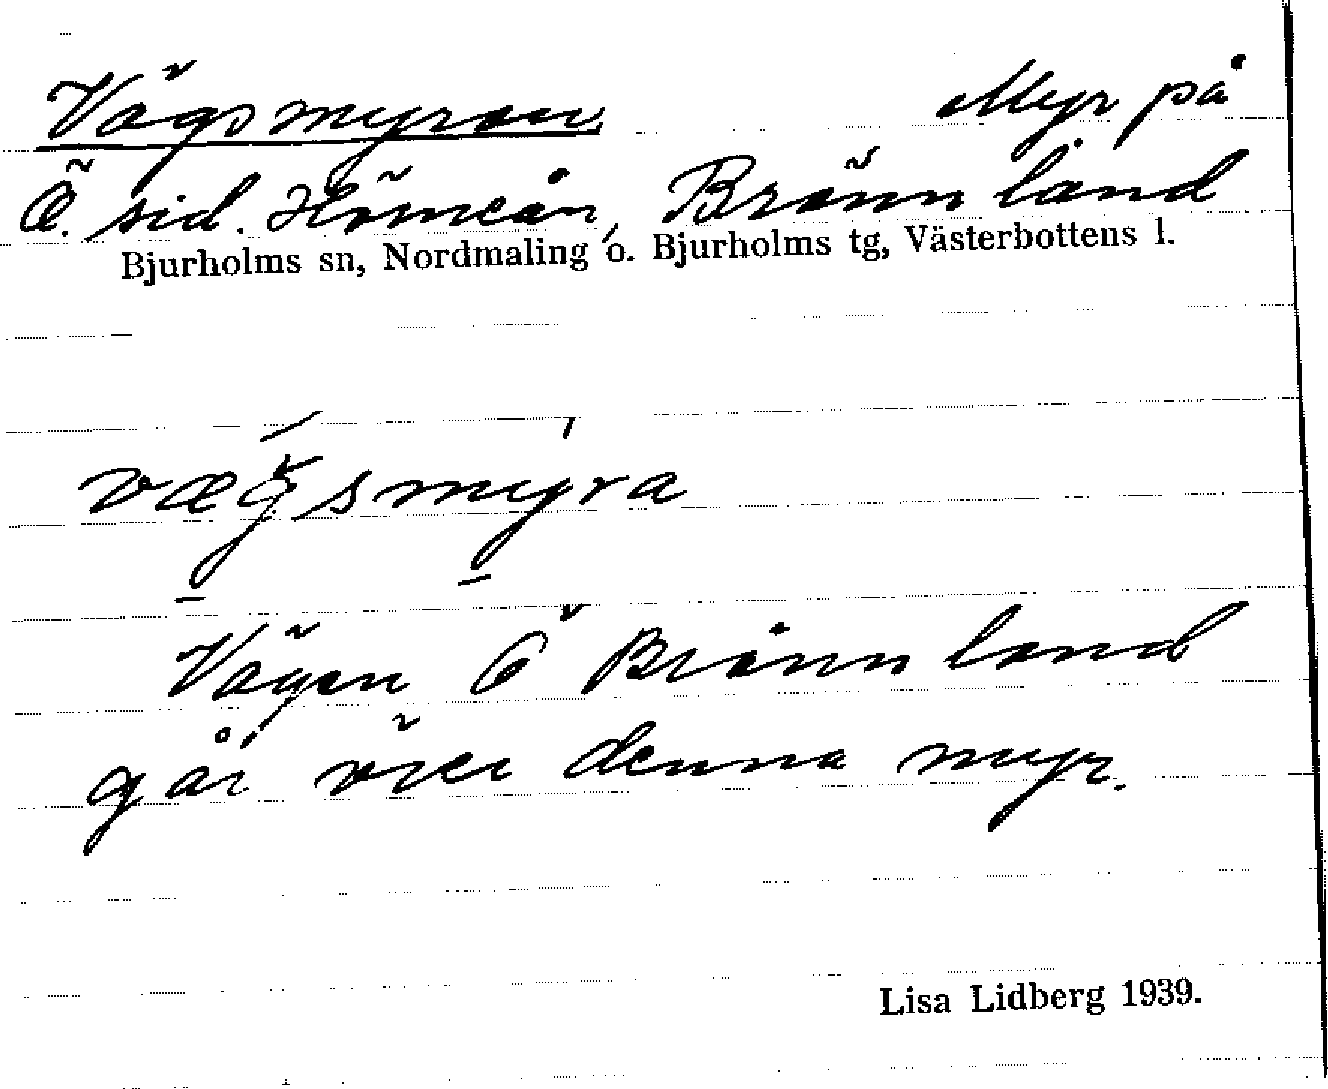 Vägsmyran Myr på
Ö. sid. Hörneån, Brännland
Bjurholms sn, Nordmaling o. Bjurholms tg, Västerbottens l.
væg̀smyra
Vägen Ö Brännland
går över denna myr.
Lisa Lidberg 1939.